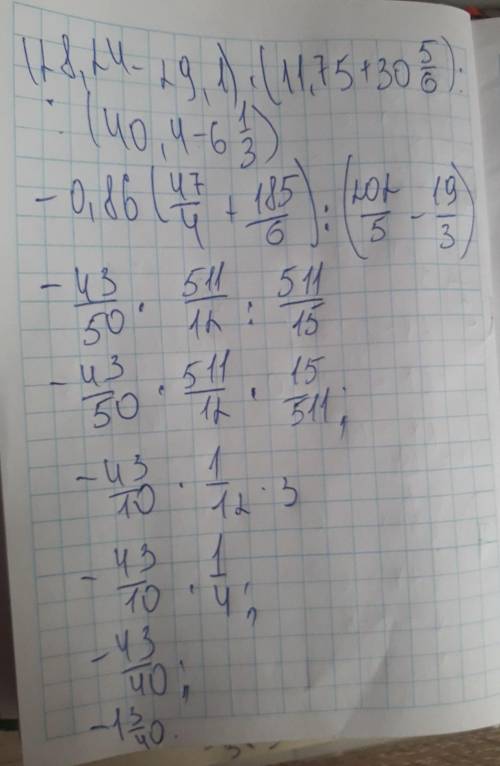 (28,24 - 29,1) · (11,75 + 30 5/6) :
: (40,4 - 6 1/3)
- 0,86 (47/4 + 185/6) : (202/5 - 19/3)
- 43/50 · 511/12 : 511/15
- 43/50 · 511/12 · 15/511;
- 43/10 · 1/12 · 3
- 43/10 · 1/4;
- 43/40;
- 1 3/40.